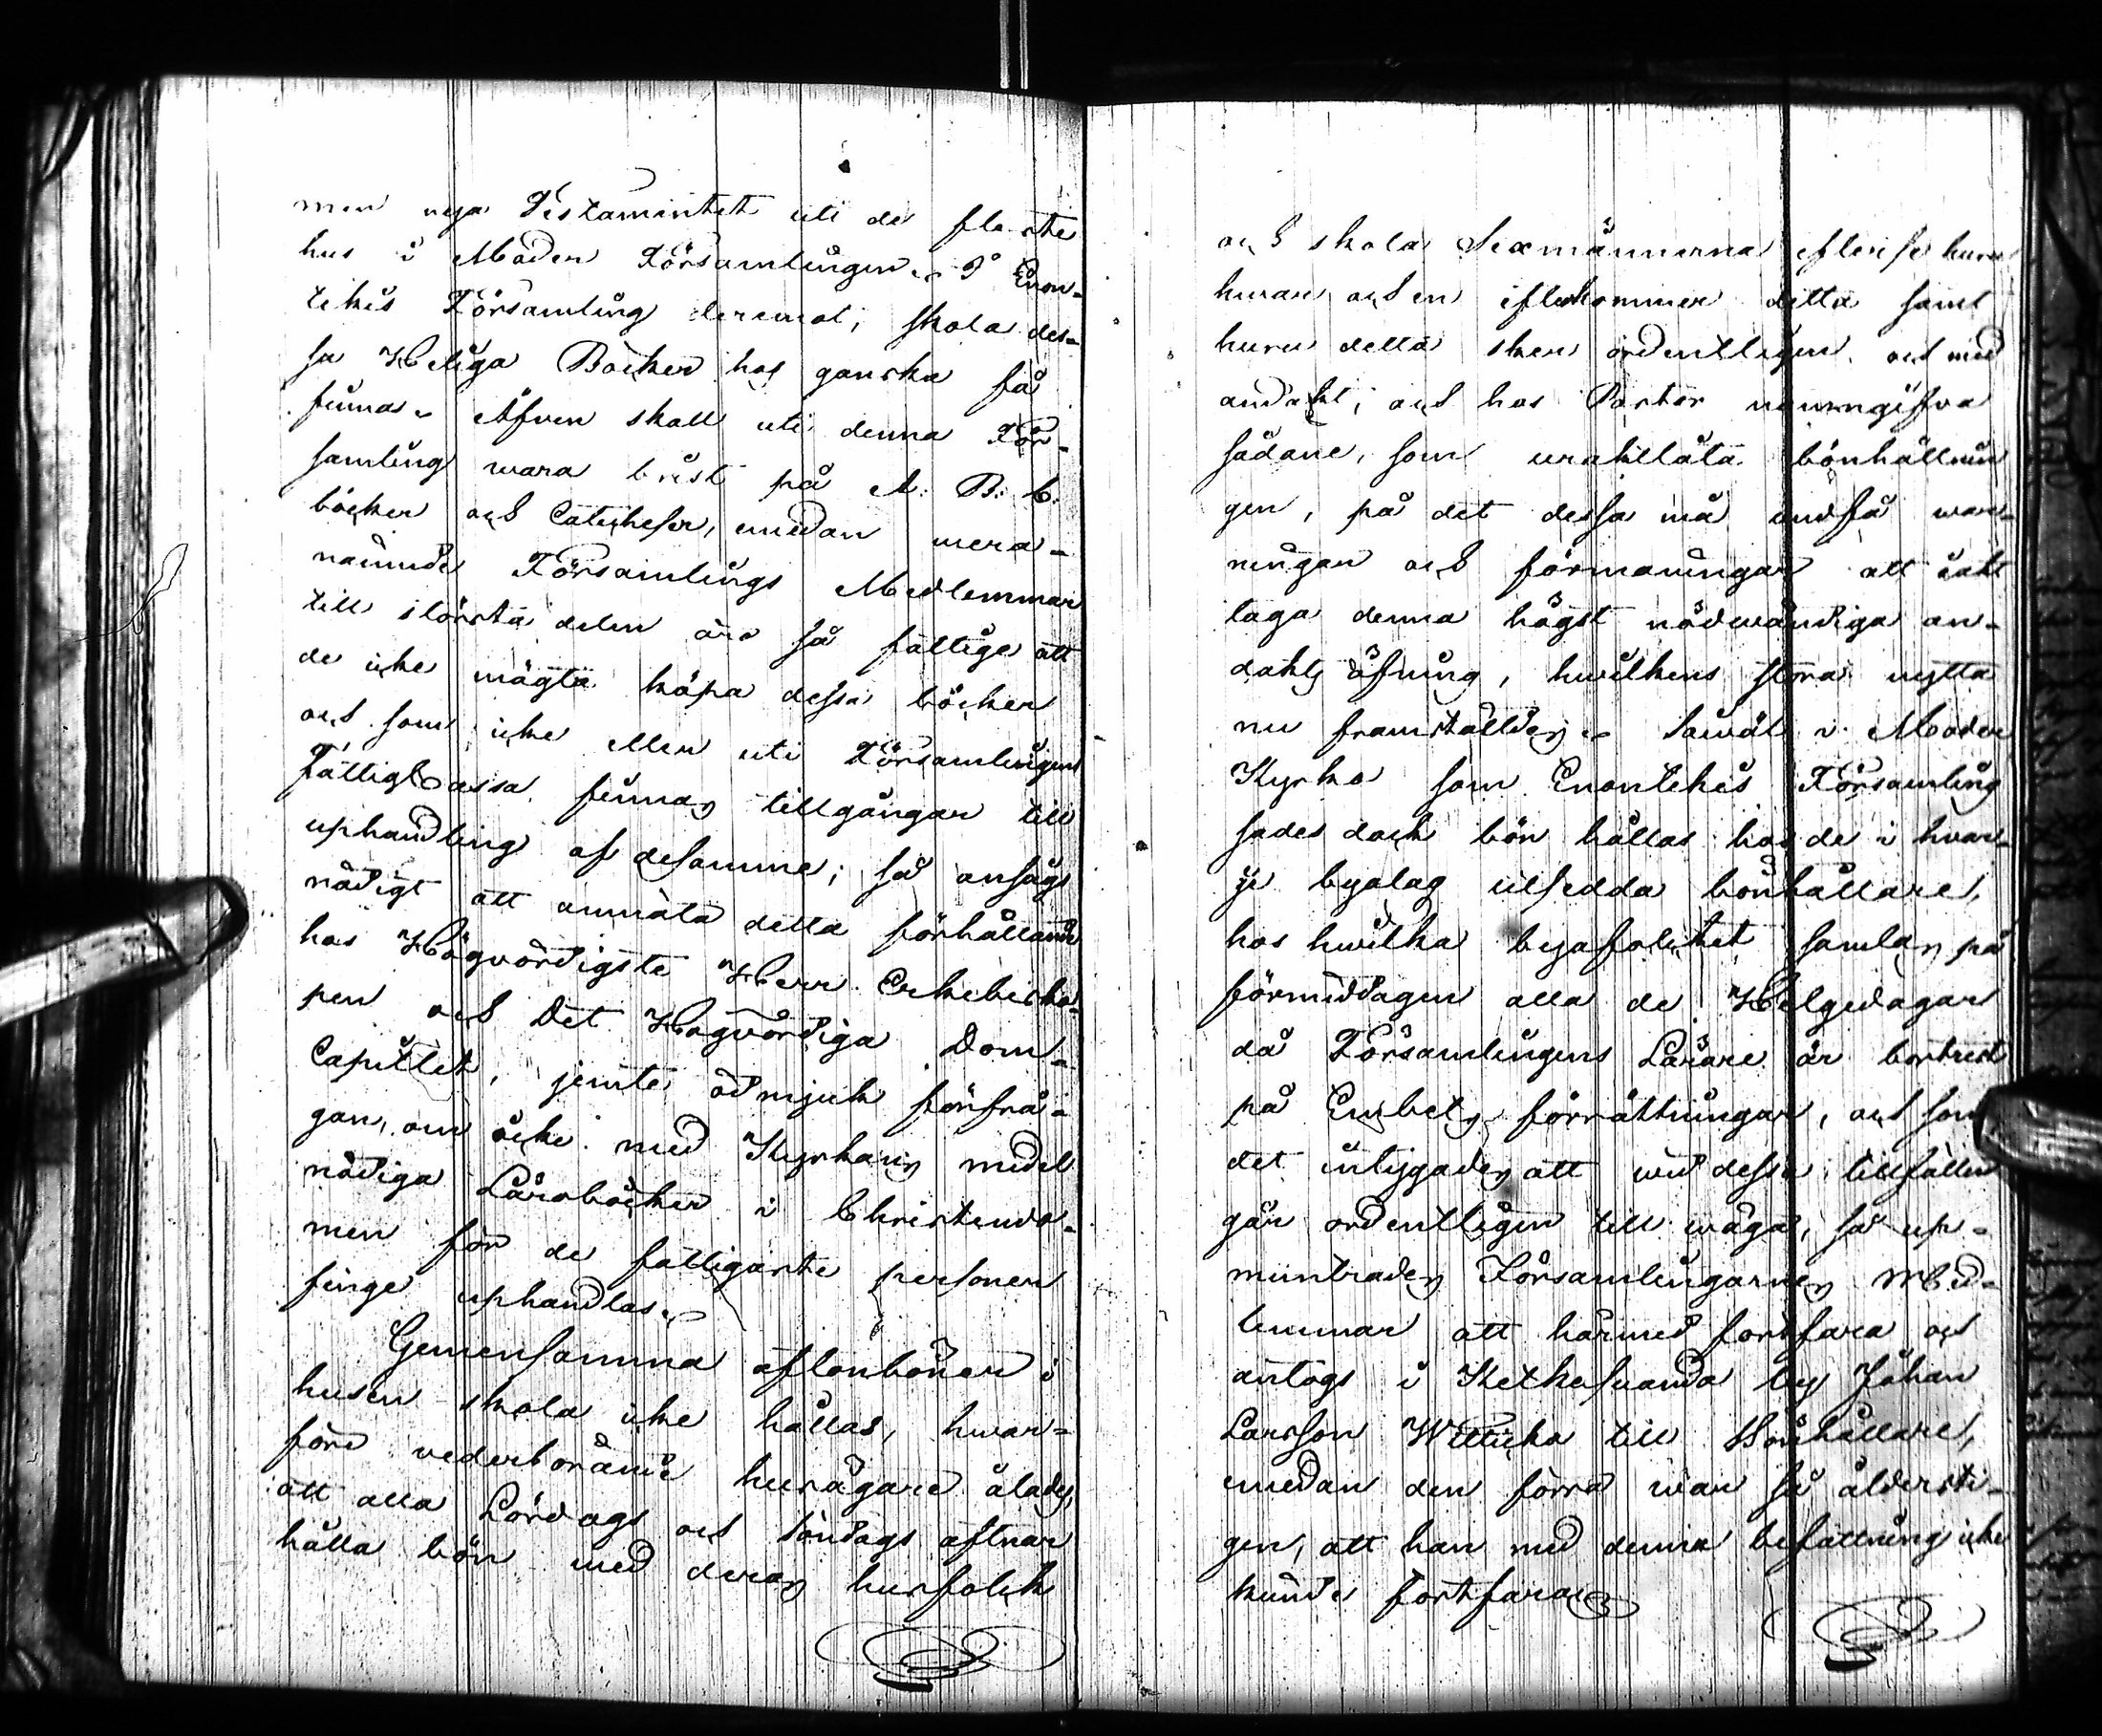 men nya Testamentet uti de fleste
hus i Moder Församlingen. I Enon-
tekis Församling deremot, skola des-
sa Heliga Böcker hos ganska få
finnas. Äfven skall uti denna För-
samling wara brist på A. B. C.
böcker och Catecheser, emedan mera-
nämnde Församlings Medlemmar
till största delen äro så fattige att
de icke mägta köpa dessa böcker
och som icke eller uti Församlingens
Fattig Cassa finnas tillgångar till
uphandling af desamme; så ansågs
nödigt att anmäla detta förhållande
hos Högvördigste Herr Erkebisko-
pen och Det Högvördiga Dom-
Capitlet, jemte ödmjuk förfrå-
gan, om icke med Kyrkans medel
nödiga Läroböcker i Christendo-
men för de fattigaste personer
finge uphandlas.
Gemensamma aftonböner i
husen skola icke hållas, hvar-
före vederbörande husägare ålades,
att alla Lördags och Söndags aftnar
hålla bön med deras husfolck
och skola Sexmännerna efterse huru
hwar och en efterkommer detta samt
huru detta sker ordentligen och med
andakt, och hos Pastor namngifva
sådane, som uraktlåta bönhållnin
gen, på det dessa må undfå war-
ningar och förmaningar att iakt
taga denna högst nödwändiga an-
dakts öfning, hwilkens stora nytta
nu framställdes. Såwäl i Moder
Kyrko som Enontekis Församling
sades dock bön hållas hos de i hvar-
je byalag utsedda bönhållare,
hos hwilka byafolcket samlas på
förmiddagen alla de Helgedagar
då Församlingens Lärare är bortrest
på Embets förrättningar, och som
det intygades att wid dessa tillfällen
går ordentligen till wäga, så up-
muntrades Församlingarnes Med-
lemmar att härmed fortfara och
antogs i Kätkesuando by Johan
Larsson Witticko till Bönhållare,
emedan den förra war så åldersti-
gen, att han med denna befattning icke
kunde fortfara